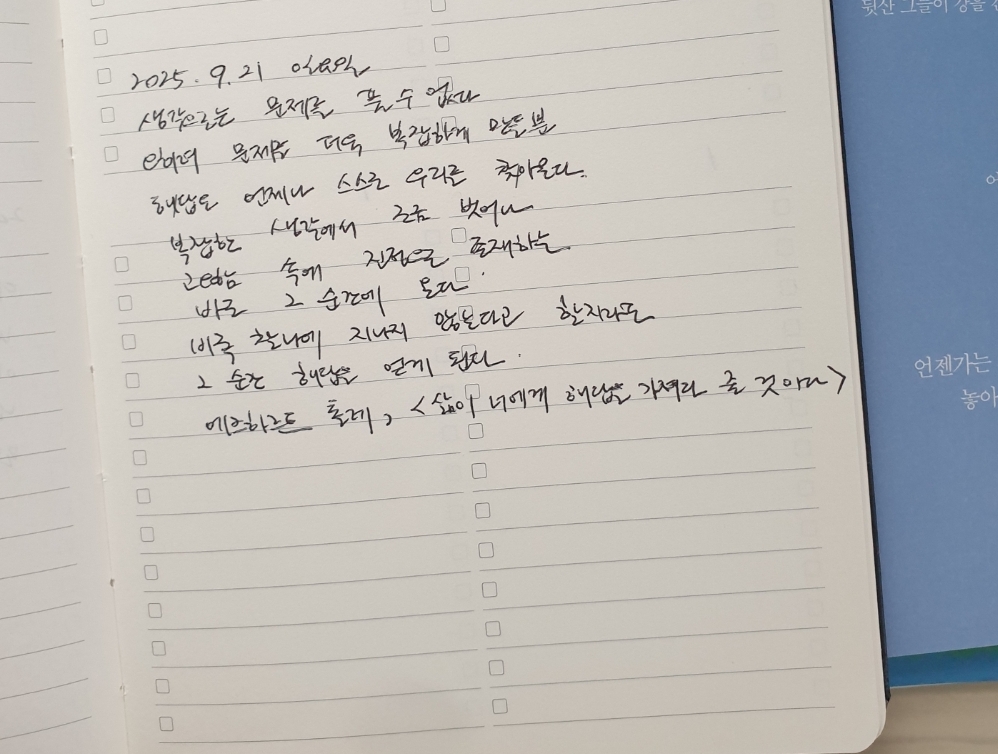 2025. 9. 21 일요일
생각으로는 문제를 풀 수 없다
오히려 문제를 더욱 복잡하게 만들 뿐
해답은 언제나 스스로 우리를 찾아온다.
복잡한 생각에서 조금 벗어나
고요함 속에 진정으로 존재하는
바로 그 순간에 온다.
비록 찰나에 지나지 않는다고 할지라도
그 순간 해답을 얻게 된다.
에크하르트 톨레, <삶이 너에게 해답을 가져다 줄 것이다>
뒷산 그늘이 강을
언젠가는
놓아